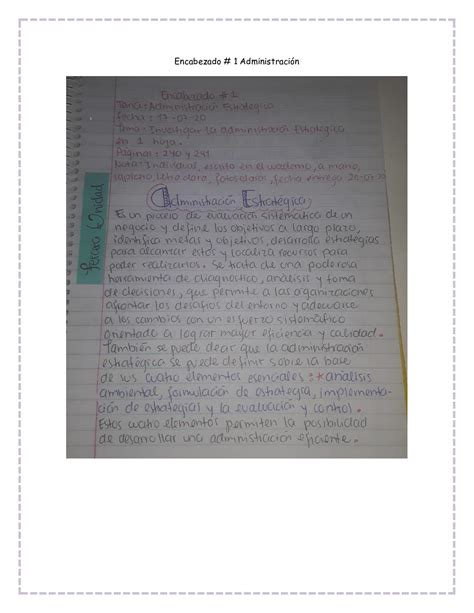 Encabezado # 1 Administración
Encabezado # 1
Tarea: Administración Estrategica
fecha: 17-07-20
Tema: Investigar la administración Estrategica
en 1 hoja.
Páginas: 240 y 241
Nota: Individual, escrito en el cuaderno, a mano,
lapicero, letra clara, fotos claras, fecha entrega 25-07-20
Administración Estratégica,
Es un proceso de evaluación sistemática de un
negocio y define los objetivos a largo plazo,
identifica metas y objetivos, desarrolla estrategias
para alcanzar estos y localiza recursos para
poder realizarlos. Se trata de una poderosa
herramienta de diagnostico, análisis y toma
de decisiones, que permite a las organizaciones
afrontar los desafios del entorno y adecuarse
a los cambios con un esfuerzo sistemático
orientado a lograr mayor eficiencia y calidad.
También se puede decir que la administración
estratégica se puede definir sobre la base
de sus cuatro elementos esenciales: *análisis
ambiental, formulación de estrategia, implementa-
ción de estrategias y la evaluación y control.
Estos cuatro elementos permiten la posibilidad
de desarrollar una administración eficiente.
Unidad